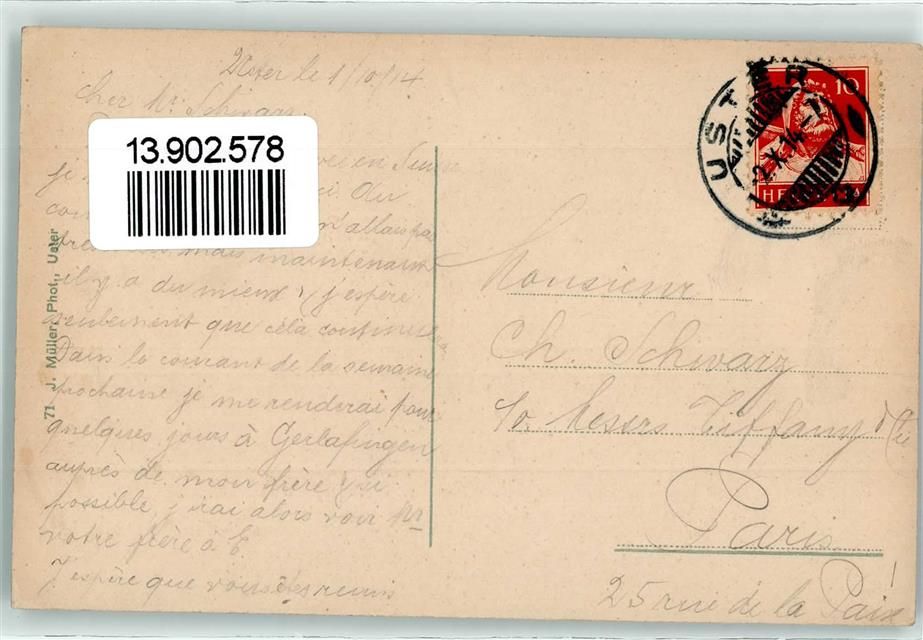 Uster le 1/10/14
Cher Mr. Schwarz
13.902.578
je
en Suisse
Du
n'allais pas
mais maintenant
il y a du mieux & j'espère
seulement que cela continuera
Dans le courant de la semaine
prochaine je me renderai pour
quelques jours à Gerlafingen
auprès de mon frère & si
possible j'irai alors voir Mr
votre frère à E.
J'espère que vous êtes remis
71 J. Müller, Phot., Uster
USTER
2.X.14.-7
10
HE
Monsieur
Ch. Schwarz
c/o Messrs Tiffany & Cie
Paris
25 rue de la Paix